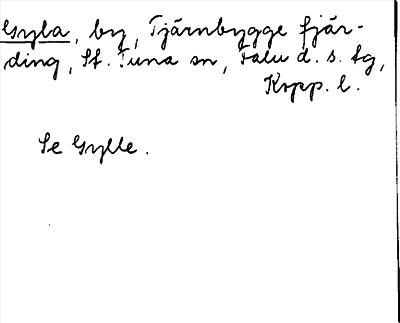 Gyla, by, Tjärnbygge fjär-
ding, St. Tuna sn, Falu d. s. tg,
Kopp. l.
Se Gylle.